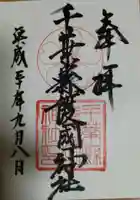 奉拝
千葉縣護國神社
平成三十年九月八日